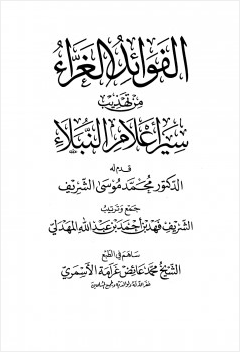 الفوائد الغراء
من تهذيب
سير أعلام النبلاء
قدم له
الدكتور محمد موسى الشريف
جمع وترتيب
الشريف فهد بن أحمد بن عبد الله المهدلي
ساهم في الطبع
الشيخ محمد عائض غرامة الأسمري
غفر الله له ولوالديه ولجميع المسلمين